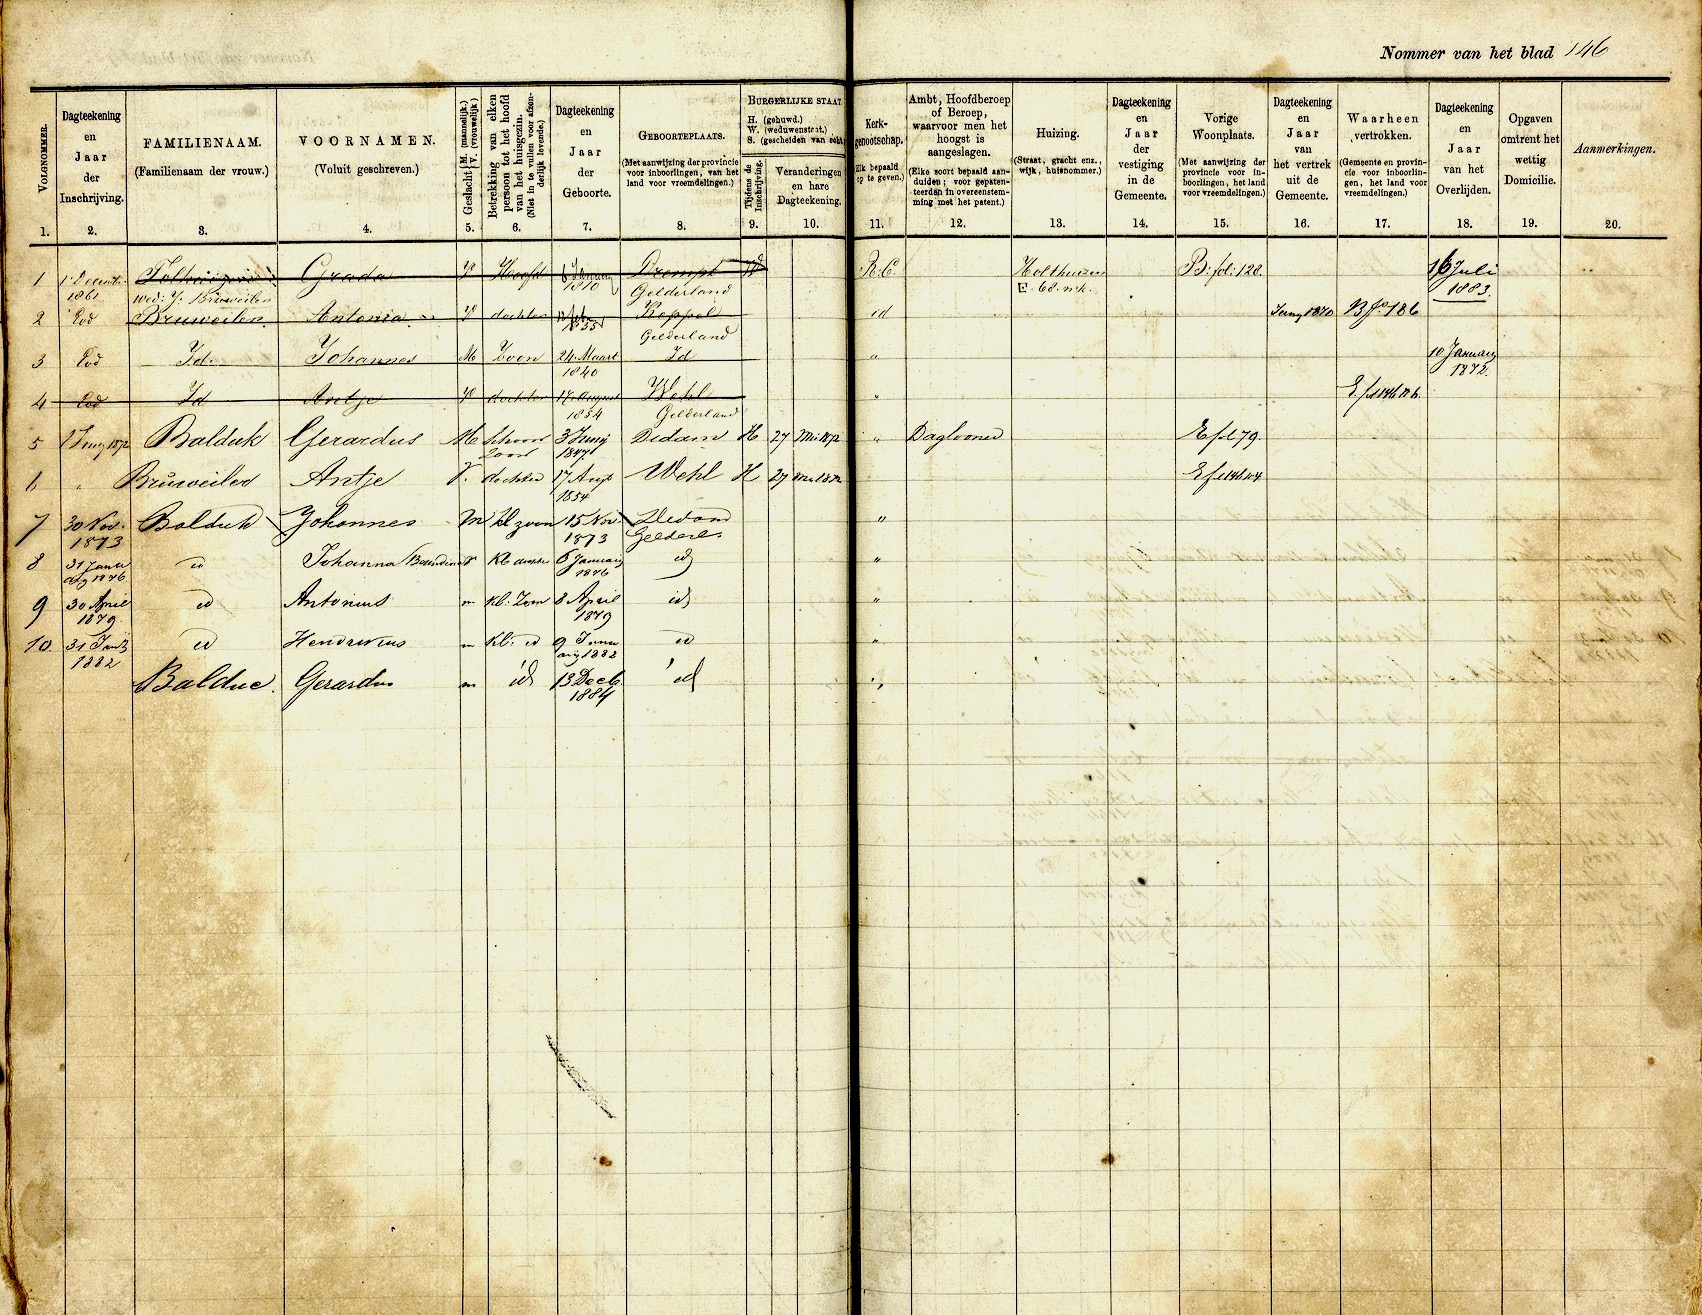 Nommer van het blad 146
VOLGNOMMER. 1.
Dagteekening en Jaar der Inschrijving. 2.
FAMILIENAAM. (Familienaam der vrouw.) 3.
VOORNAMEN. (Voluit geschreven.) 4.
Geslacht M. (mannelijk.) V. (vrouwelijk.) 5.
Betrekking van elken persoon tot het hoofd van het huisgezin. (Niet in te vullen voor afzonderlijk levende.) 6.
Dagteekening en Jaar der Geboorte. 7.
GEBOORTEPLAATS. (Met aanwijzing der provincie voor inboorlingen, van het land voor vreemdelingen.) 8.
BURGERLIJKE STAAT.
H. (gehuwd.)
W. (weduwenstaat.)
S. (gescheiden van echt.)
Tijdens de Inschrijving. 9.
Veranderingen en hare Dagteekening. 10.
Kerkgenootschap. Elk bepaald op te geven.) 11.
Ambt, Hoofdberoep of Beroep, waarvoor men het hoogst is aangeslagen. (Elke soort bepaald aanduiden; voor gepatenteerden in overeenstemming met het patent.) 12.
Huizing. (Straat, gracht enz., wijk, huisnommer.) 13.
Dagteekening en Jaar der vestiging in de Gemeente. 14.
Vorige Woonplaats. (Met aanwijzing der provincie voor inboorlingen, het land voor vreemdelingen.) 15.
Dagteekening en Jaar van het vertrek uit de Gemeente. 16.
Waarheen vertrokken. (Gemeente en provincie voor inboorlingen, het land voor vreemdelingen.) 17.
Dagteekening en Jaar van het Overlijden. 18.
Opgaven omtrent het wettig Domicilie. 19.
Aanmerkingen. 20.
1 1 Decemb: 1861 wed: Bruweiler Grada V Hoofd 6 Januarij 1810 Gelderland W R:C. Holthuizen E. 68. B: fol: 128. 16 Juli 1883.
2 Eod Bruweiler Antonia V dochter Keppel Gelderland id 1870 B fo 186
3 Eod Id. Johannes M Zoon 24 Maart 1840 Id " 10 January 1872.
4 Eod Id Antje V dochter 17 August 1854 Wehl Gelderland "
5 1872 Balduk Gerardus M Schoon Zoon 3 Junij 1847 Didam H 27 Mei 1872 " Daglooner E fol 79
6 " Bruweiler Antje V. dochter 17 Aug 1854 Wehl H 27 Mei 1872
7 30 Nov. 1873 Balduk Johannes M Kl zoon 15 Nov. 1873 Didam Gelderl. "
8 31 Januarij 1876 id Johanna Berendina V Kl dochter 6 Januarij 1876 id "
9 30 April 1879 id Antonius m Kl: Zoon 8 April 1879 id "
10. 31 1882 id Hendrikus m Kl: id 9 Januarij 1882 id "
Balduc. Gerardus m id 13 Decb. 1884 id "